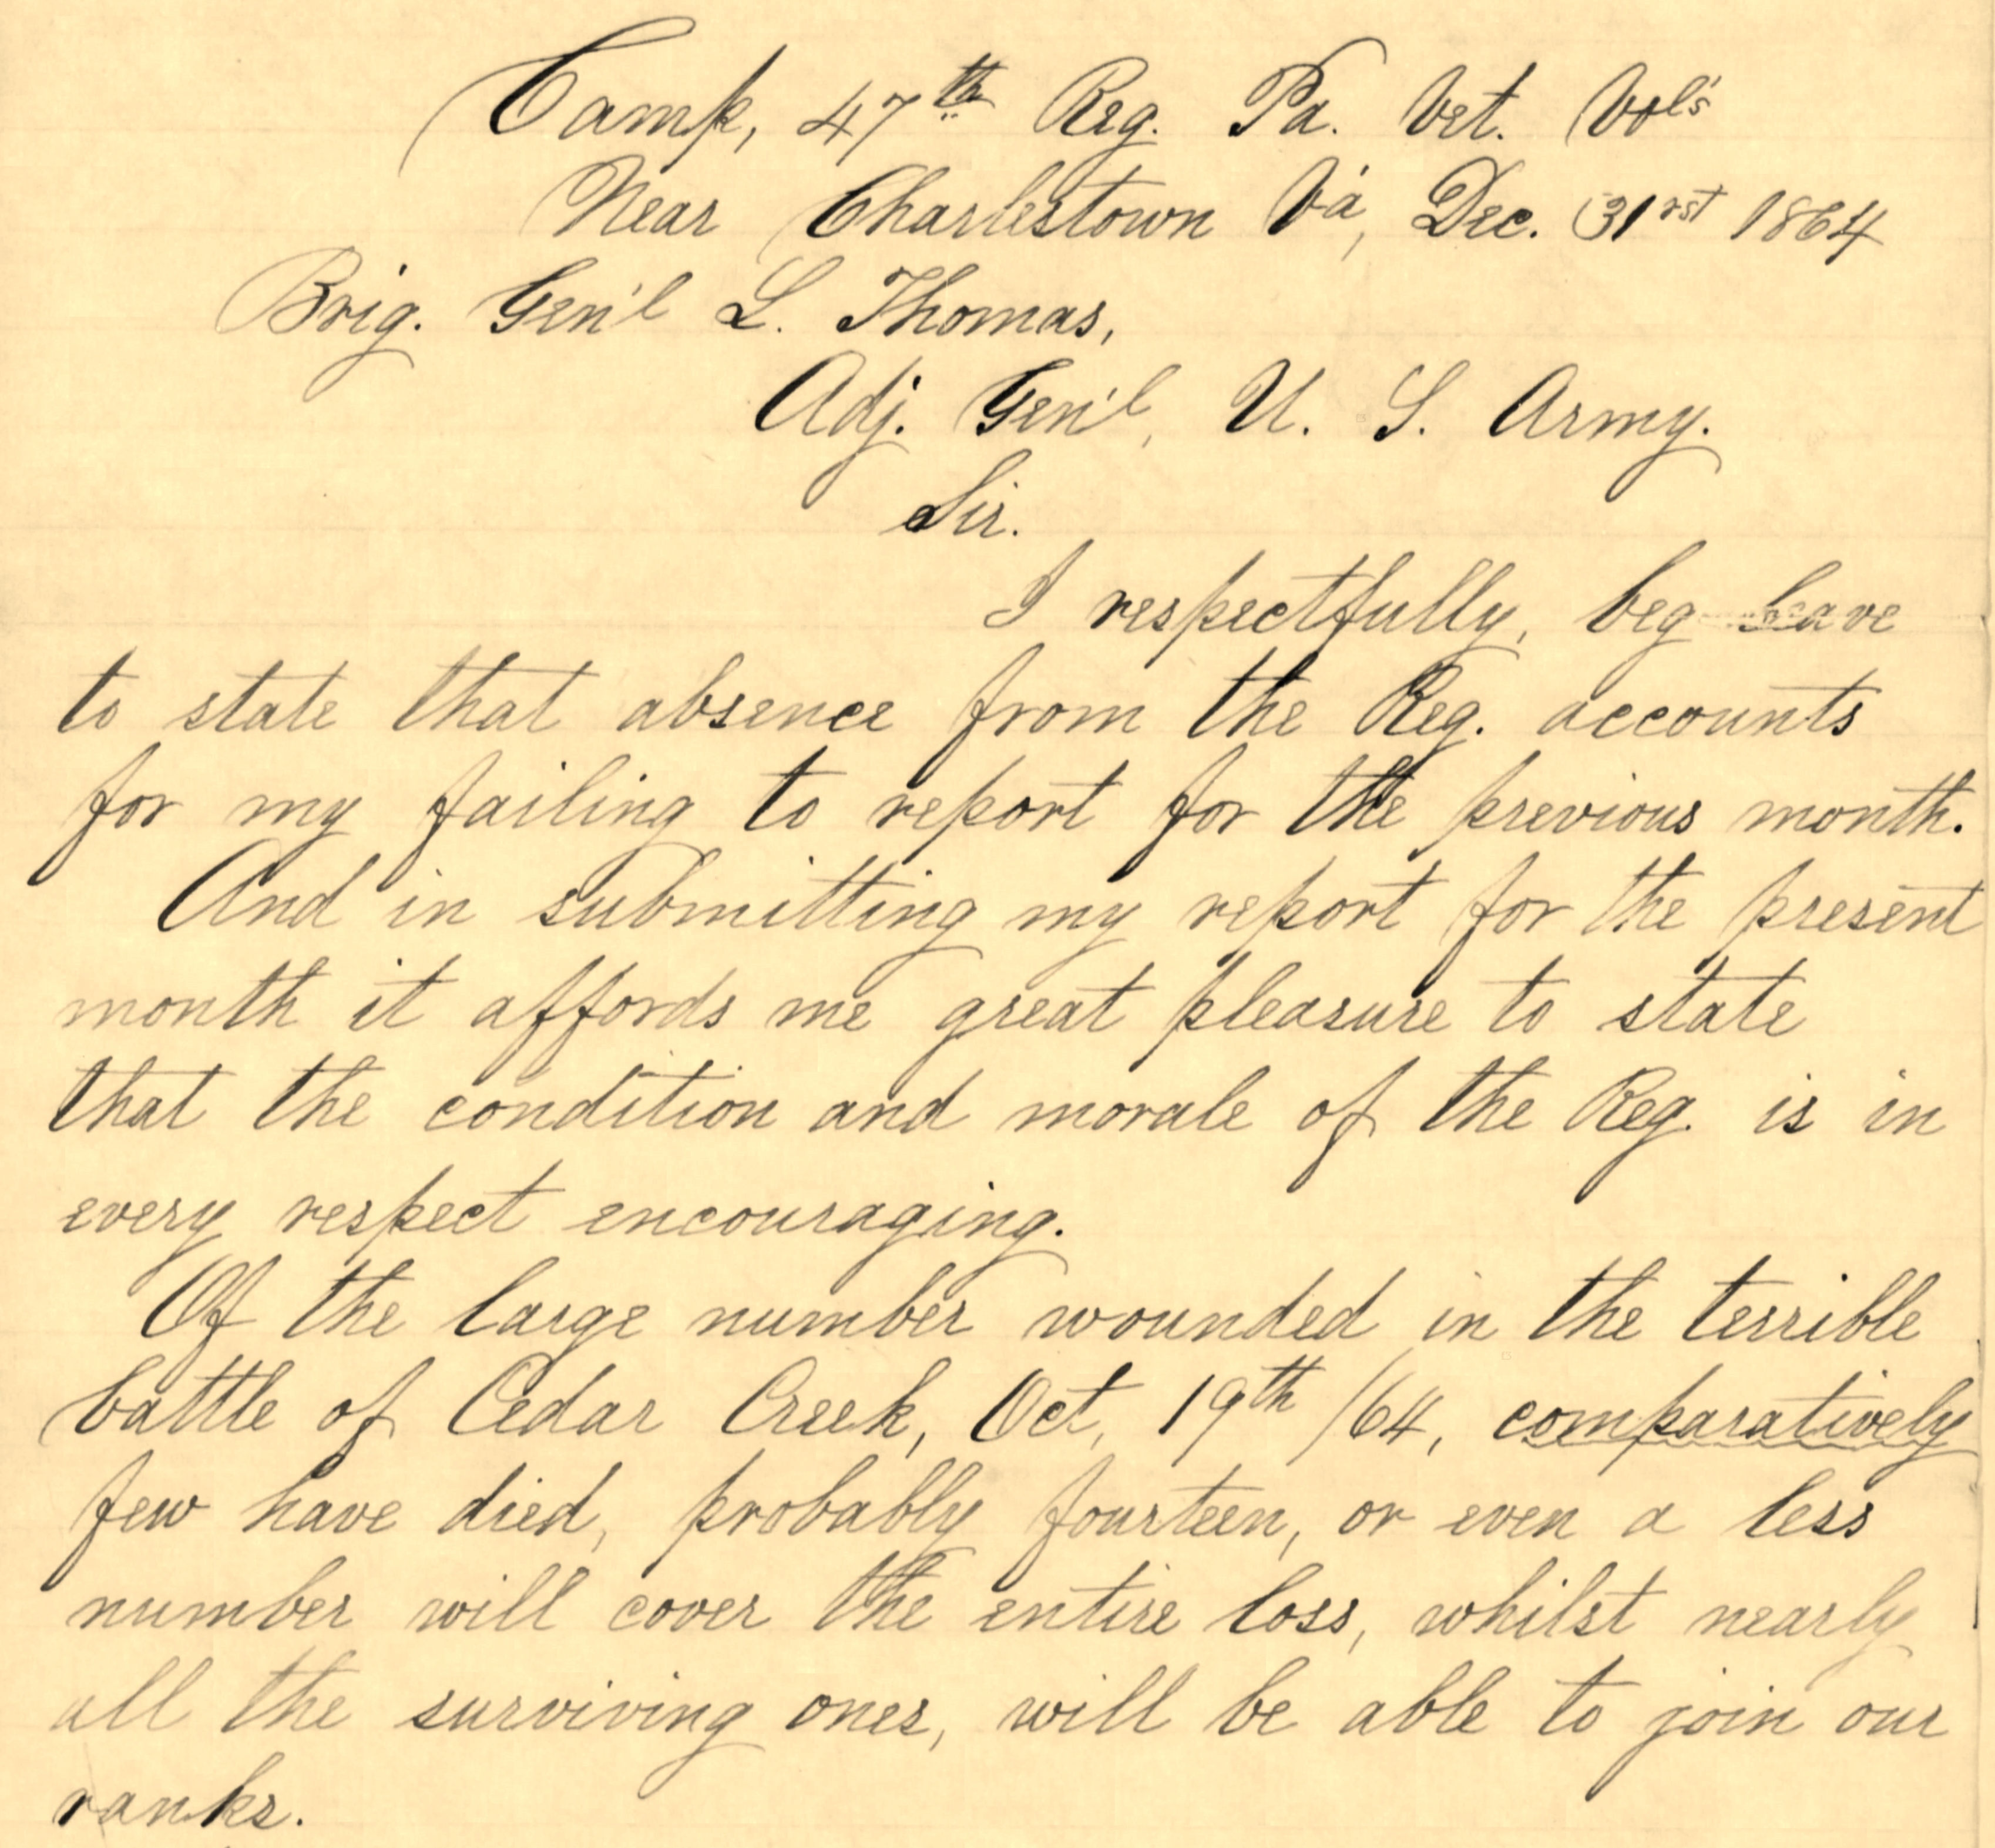 Camp, 47th Reg. Pa. Vet. Vol's
Near Charlestown Va, Dec. 31rst 1864
Brig. Gen'l L. Thomas,
Adj. Gen'l, U. S. Army.
Sir.
I respectfully, beg leave
to state that absence from the Reg. accounts
for my failing to report for the previous month.
And in submitting my report for the present
month it affords me great pleasure to state
that the condition and morale of the Reg. is in
every respect encouraging.
Of the large number wounded in the terrible
battle of Cedar Creek, Oct, 19th /64, comparatively
few have died, probably fourteen, or even a less
number will cover the entire loss, whilst nearly
all the surviving ones, will be able to join our
ranks.